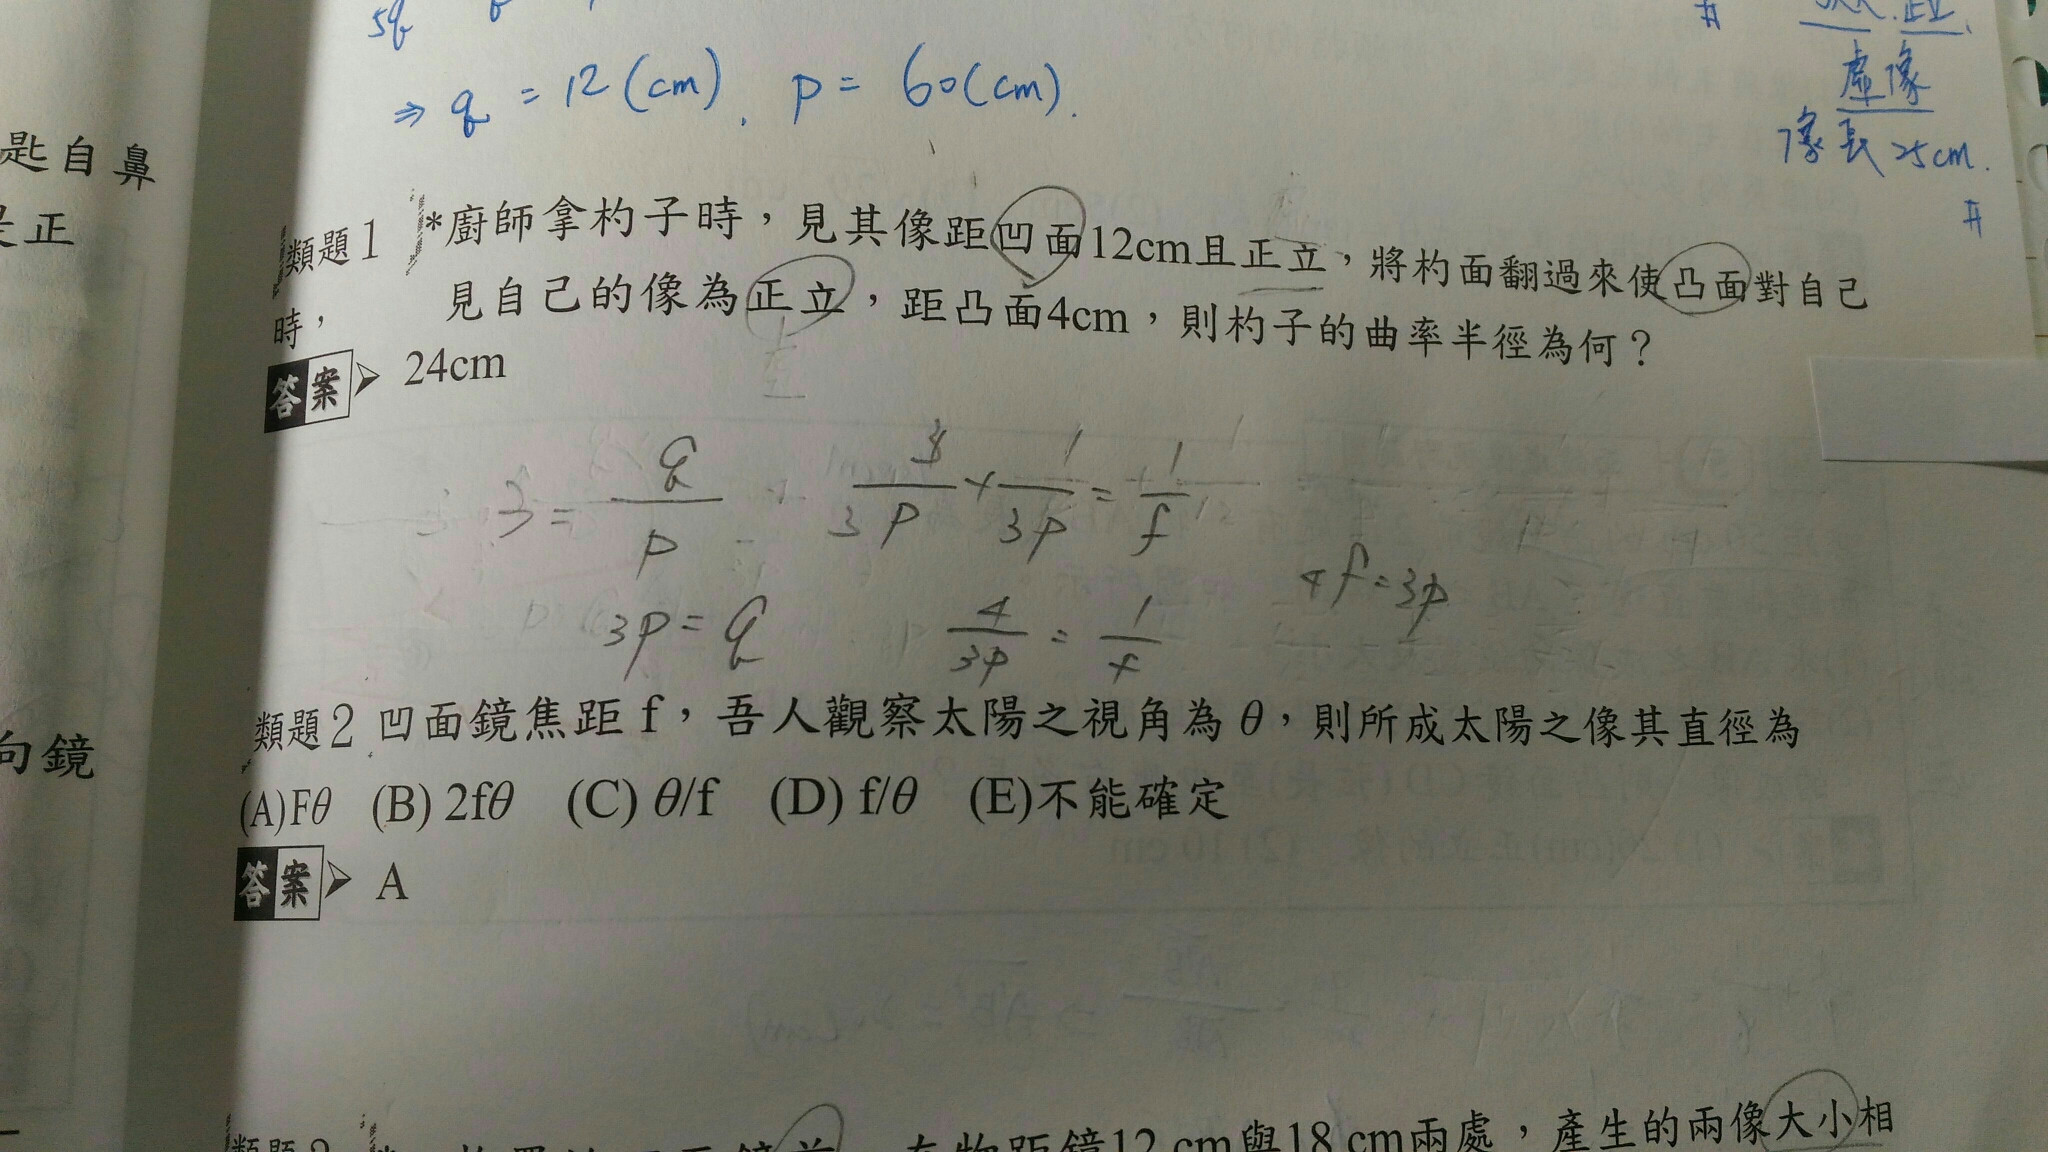 5q
⇒ q = 12 (cm), p = 60 (cm).
正立.
虛像
像長 25cm.
#
匙自鼻
是正
類題1 *廚師拿杓子時，見其像距凹面12cm且正立，將杓面翻過來使凸面對自己
時，見自己的像為正立，距凸面4cm，則杓子的曲率半徑為何？
答案 24cm
3 = q/p
3/3p + 1/3p = 1/f
4f = 3p
3p = q
4/3p = 1/f
類題2 凹面鏡焦距 f，吾人觀察太陽之視角為 θ，則所成太陽之像其直徑為
(A)Fθ (B) 2fθ (C) θ/f (D) f/θ (E)不能確定
答案 A
向鏡
在物距鏡12 cm與18 cm兩處，產生的兩像大小相